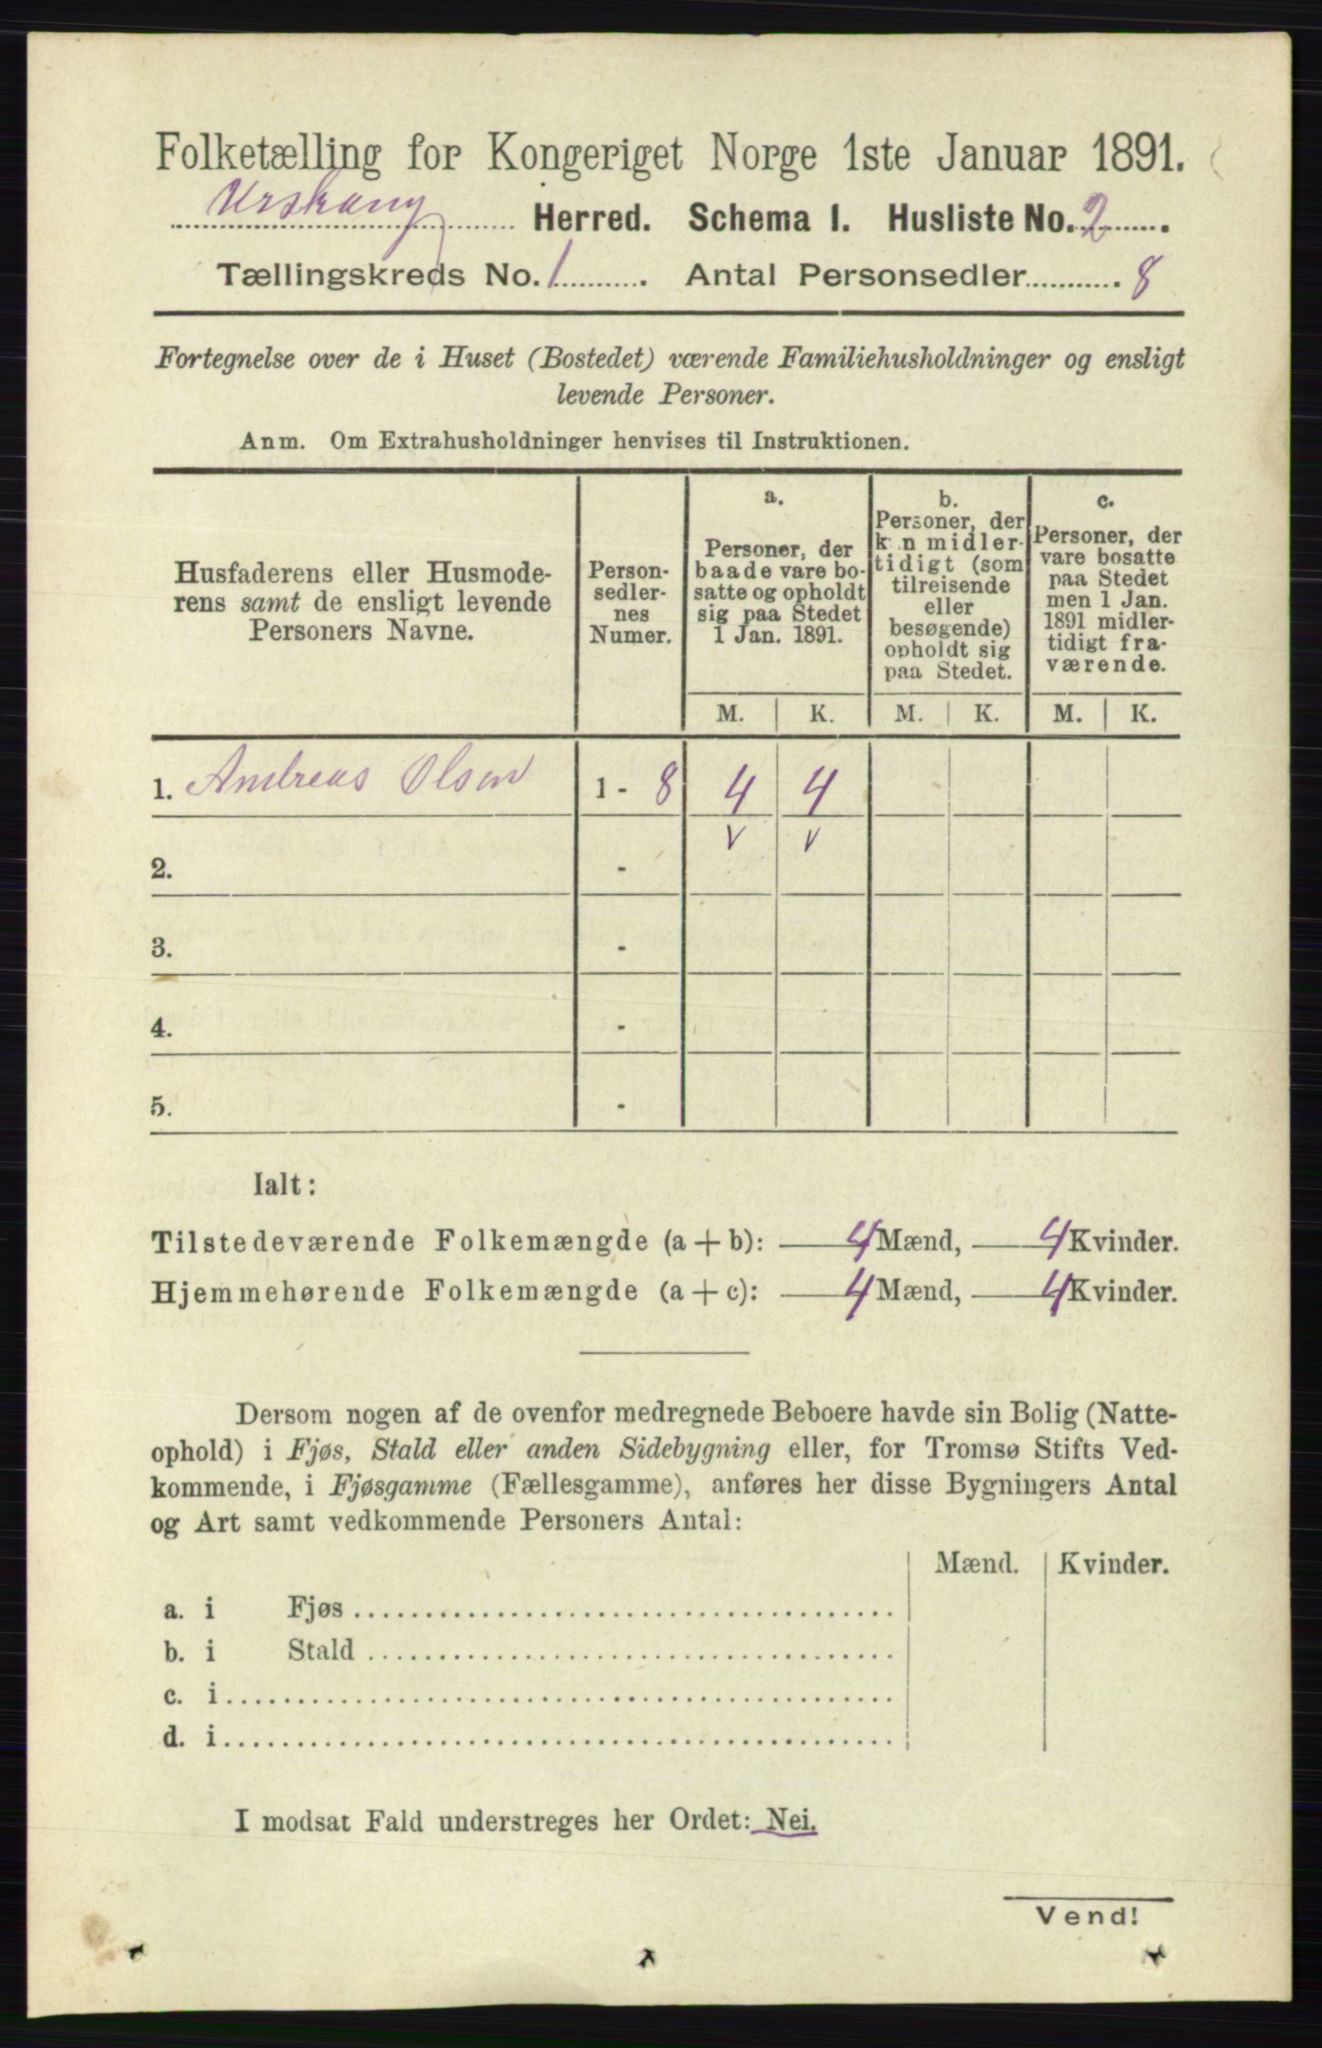 Folketælling for Kongeriget Norge 1ste Januar 1891.
Urskoug Herred. Schema 1. Husliste No. 2.
Tællingskreds No. 1. Antal Personsedler. 8
Fortegnelse over de i Huset (Bostedet) værende Familiehusholdninger og ensligt
levende Personer.
Anm. Om Extrahusholdninger henvises til Instruktionen.
Husfaderens eller Husmode-
rens samt de ensligt levende
Personers Navne.
Person-
sedler-
nes
Numer.
a.
Personer, der
baade vare bo-
satte og opholdt
sig paa Stedet
1 Jan. 1891.
b.
Personer, der
k n midler-
tidigt (som
tilreisende
eller
besøgende)
opholdt sig
paa Stedet.
c.
Personer, der
vare bosatte
paa Stedet
men 1 Jan.
1891 midler-
tidigt fra-
værende.
M. K. M. K. M. K.
1. Andreas Olsen 1 - 8 4 4
v v
2. -
3. -
4. -
5. -
Ialt:
Tilstedeværende Folkemængde (a + b): — 4 Mænd, — 4 Kvinder.
Hjemmehørende Folkemængde (a + c): — 4 Mænd, — 4 Kvinder.
Dersom nogen af de ovenfor medregnede Beboere havde sin Bolig (Natte-
ophold) i Fjøs, Stald eller anden Sidebygning eller, for Tromsø Stifts Ved-
kommende, i Fjøsgamme (Fællesgamme), anføres her disse Bygningers Antal
og Art samt vedkommende Personers Antal:
Mænd. Kvinder.
a. i Fjøs
b. i Stald
c. i
d. i
I modsat Fald understreges her Ordet: Nei.
Vend!